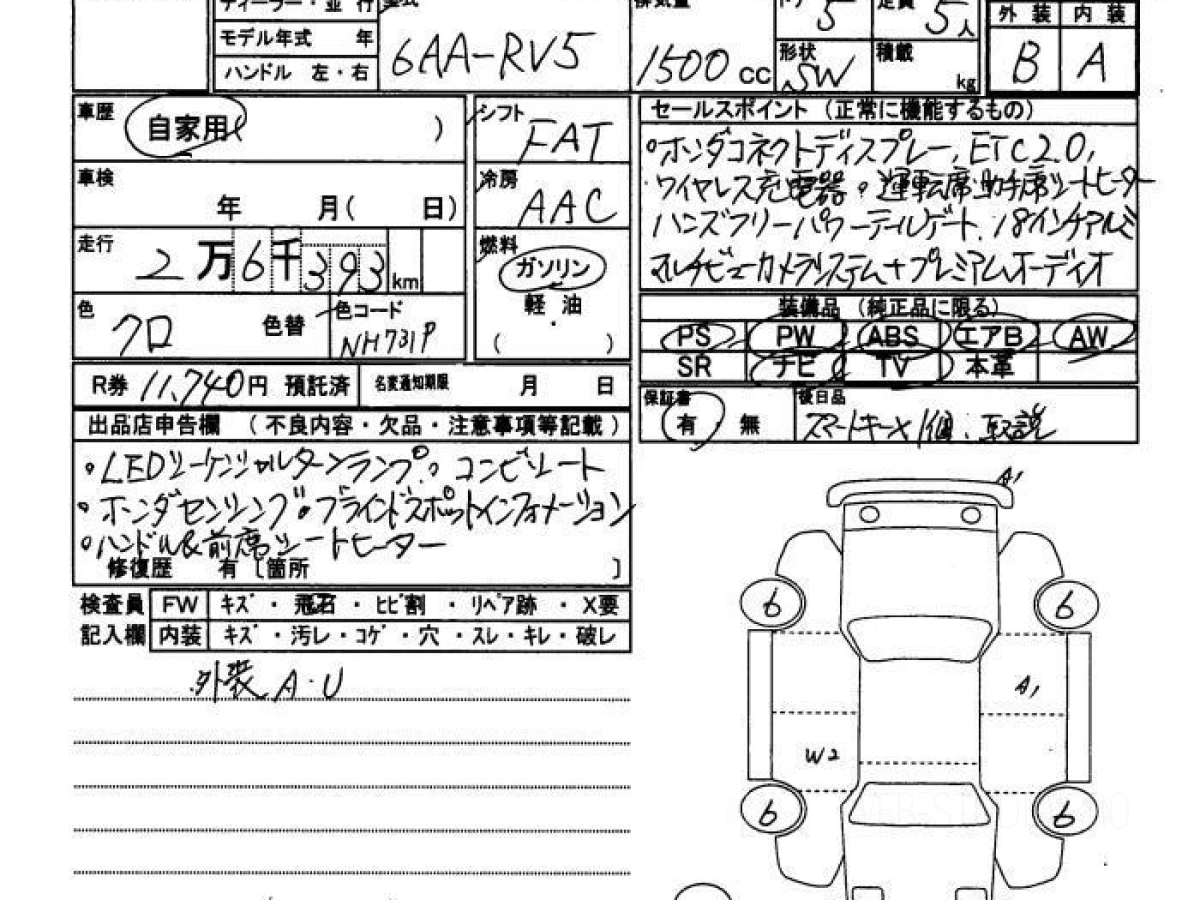 ディーラー・並行
モデル年式 年
ハンドル 左・右
型式
6AA-RV5
排気量
1500 cc
ドア
5
形状
SW
定員
5人
積載
kg
外装 内装
B A
車歴
自家用 )
車検
年 月( 日)
走行
2万6千393km
色
クロ
色替
色コード
NH731P
シフト
FAT
冷房
AAC
燃料
ガソリン
軽油
・
( )
R券 11,740円 預託済
名変通知期限 月 日
セールスポイント (正常に機能するもの)
・ホンダコネクトディスプレー, ETC2.0,
ワイヤレス充電器。運転席助手席シートヒーター
ハンズフリーパワーテールゲート. 18インチアルミ
マルチビューカメラシステム+プレミアムオーディオ
装備品 (純正品に限る)
PS PW ABS エアB AW
SR ナビ TV 本革
保証書
有・無
後日品
スマートキー×1個. 取説
出品店申告欄 (不良内容・欠品・注意事項等記載)
・LEDシーケンシャルターンランプ。コンビシート
・ホンダセンシング。ブラインドスポットインフォメーション
・ハンドル&前席シートヒーター
修復歴 有 〔箇所 〕
検査員
記入欄
FW キズ・飛石・ヒビ割・リペア跡・X要
内装 キズ・汚レ・コゲ・穴・スレ・キレ・破レ
外装A・U
A1
6 6
A1
W2
6 6